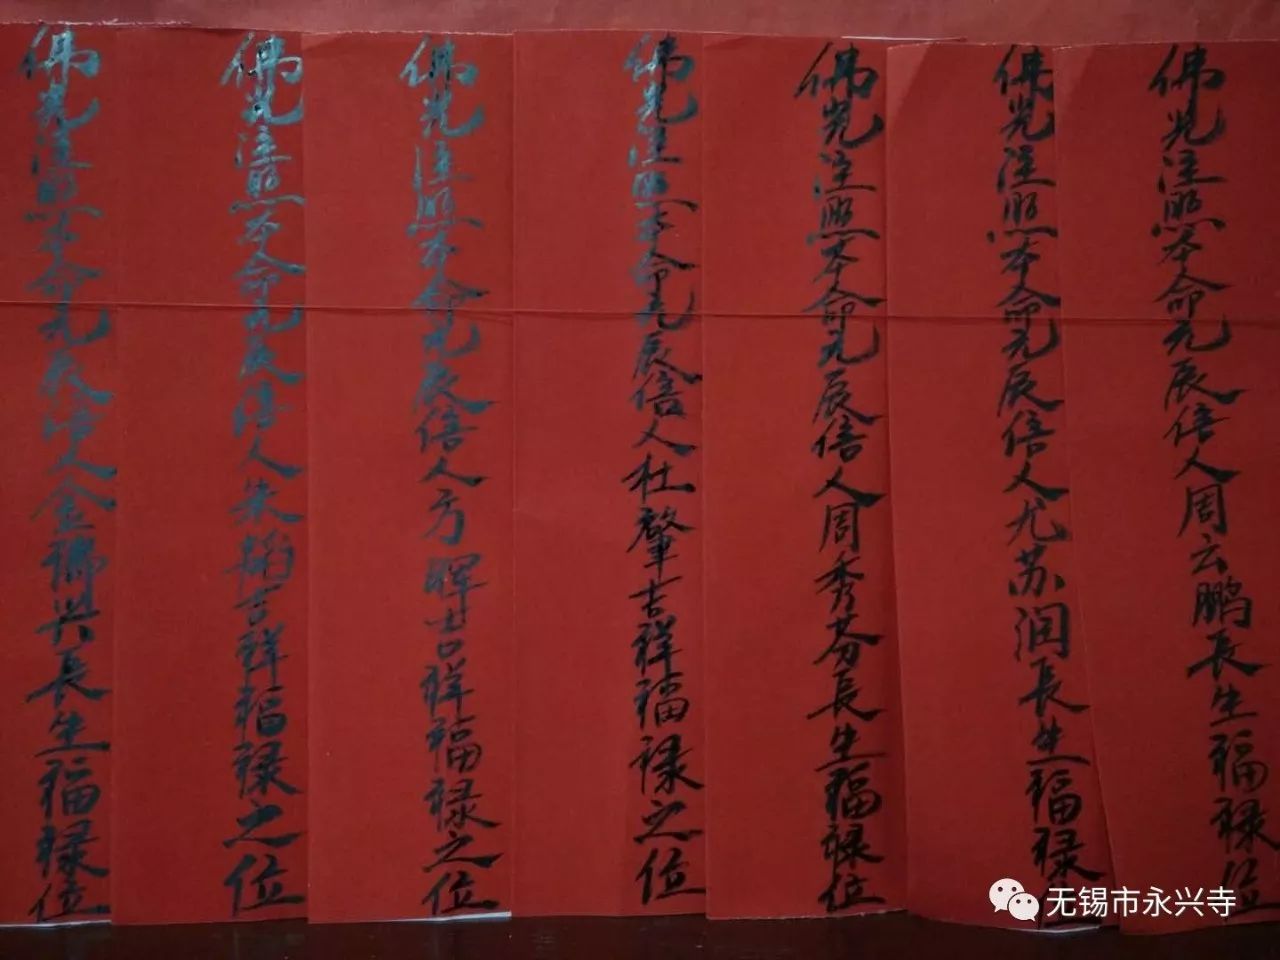 佛光注照本命元辰信人周云鹏長生福禄位
佛光注照本命元辰信人尤苏润長生福禄位
佛光注照本命元辰信人周秀芬長生福禄位
佛光注照本命元辰信人杜肇吉祥福禄之位
佛光注照本命元辰信人方晖吉祥福禄之位
佛光注照本命元辰信人朱韬吉祥福禄之位
佛光注照本命元辰信人金佛兴長生福禄位
无锡市永兴寺